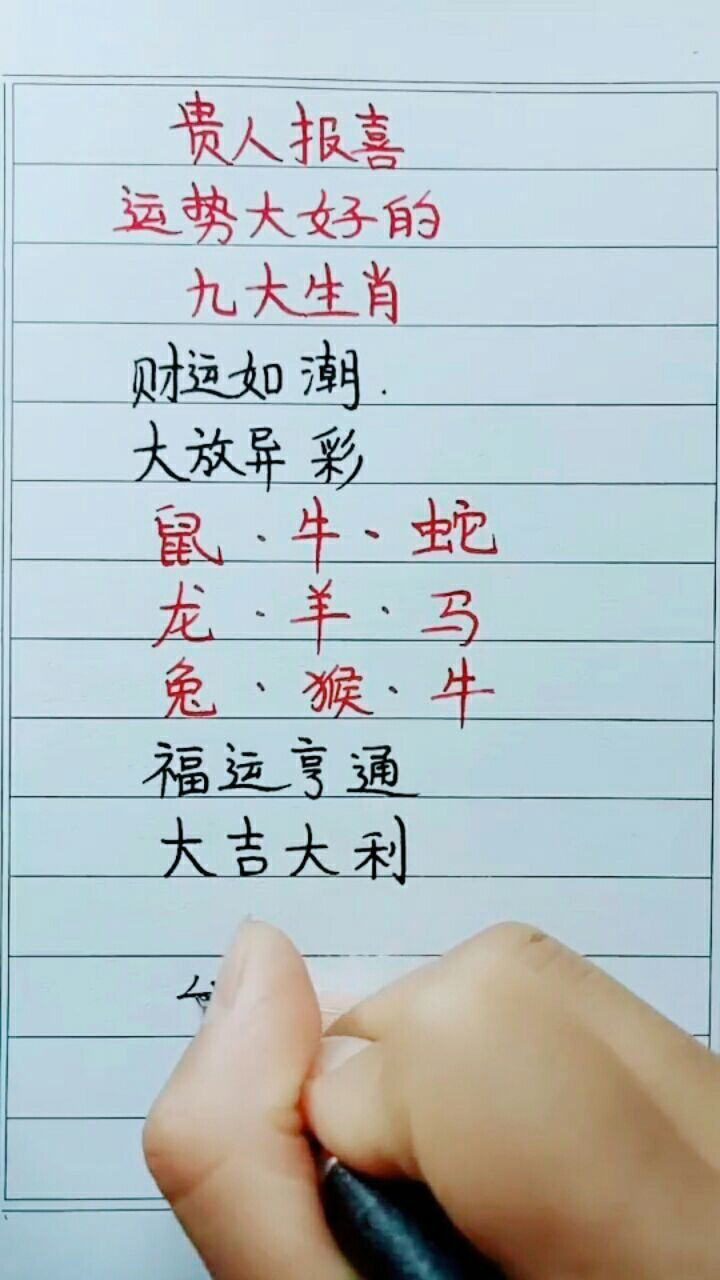 贵人报喜
运势大好的
九大生肖
财运如潮.
大放异彩
鼠·牛、蛇
龙·羊·马
兔·猴·牛
福运亨通
大吉大利